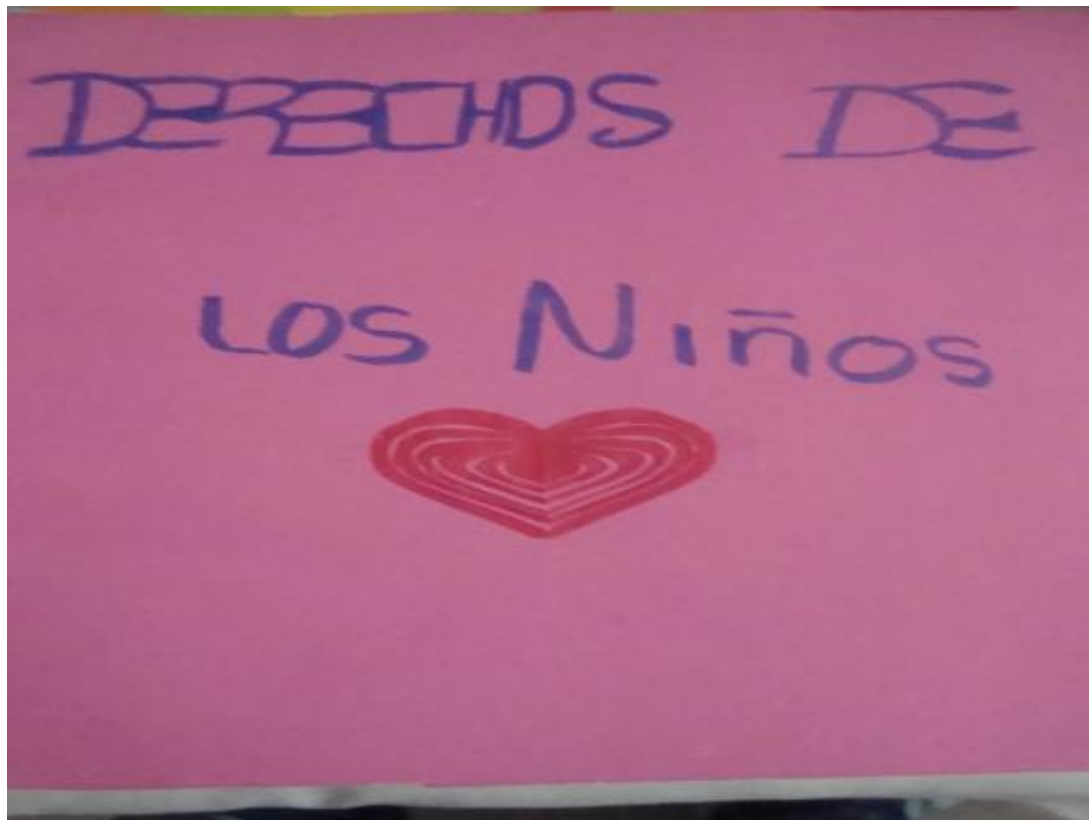 DERECHOS DE
LOS NIÑOS